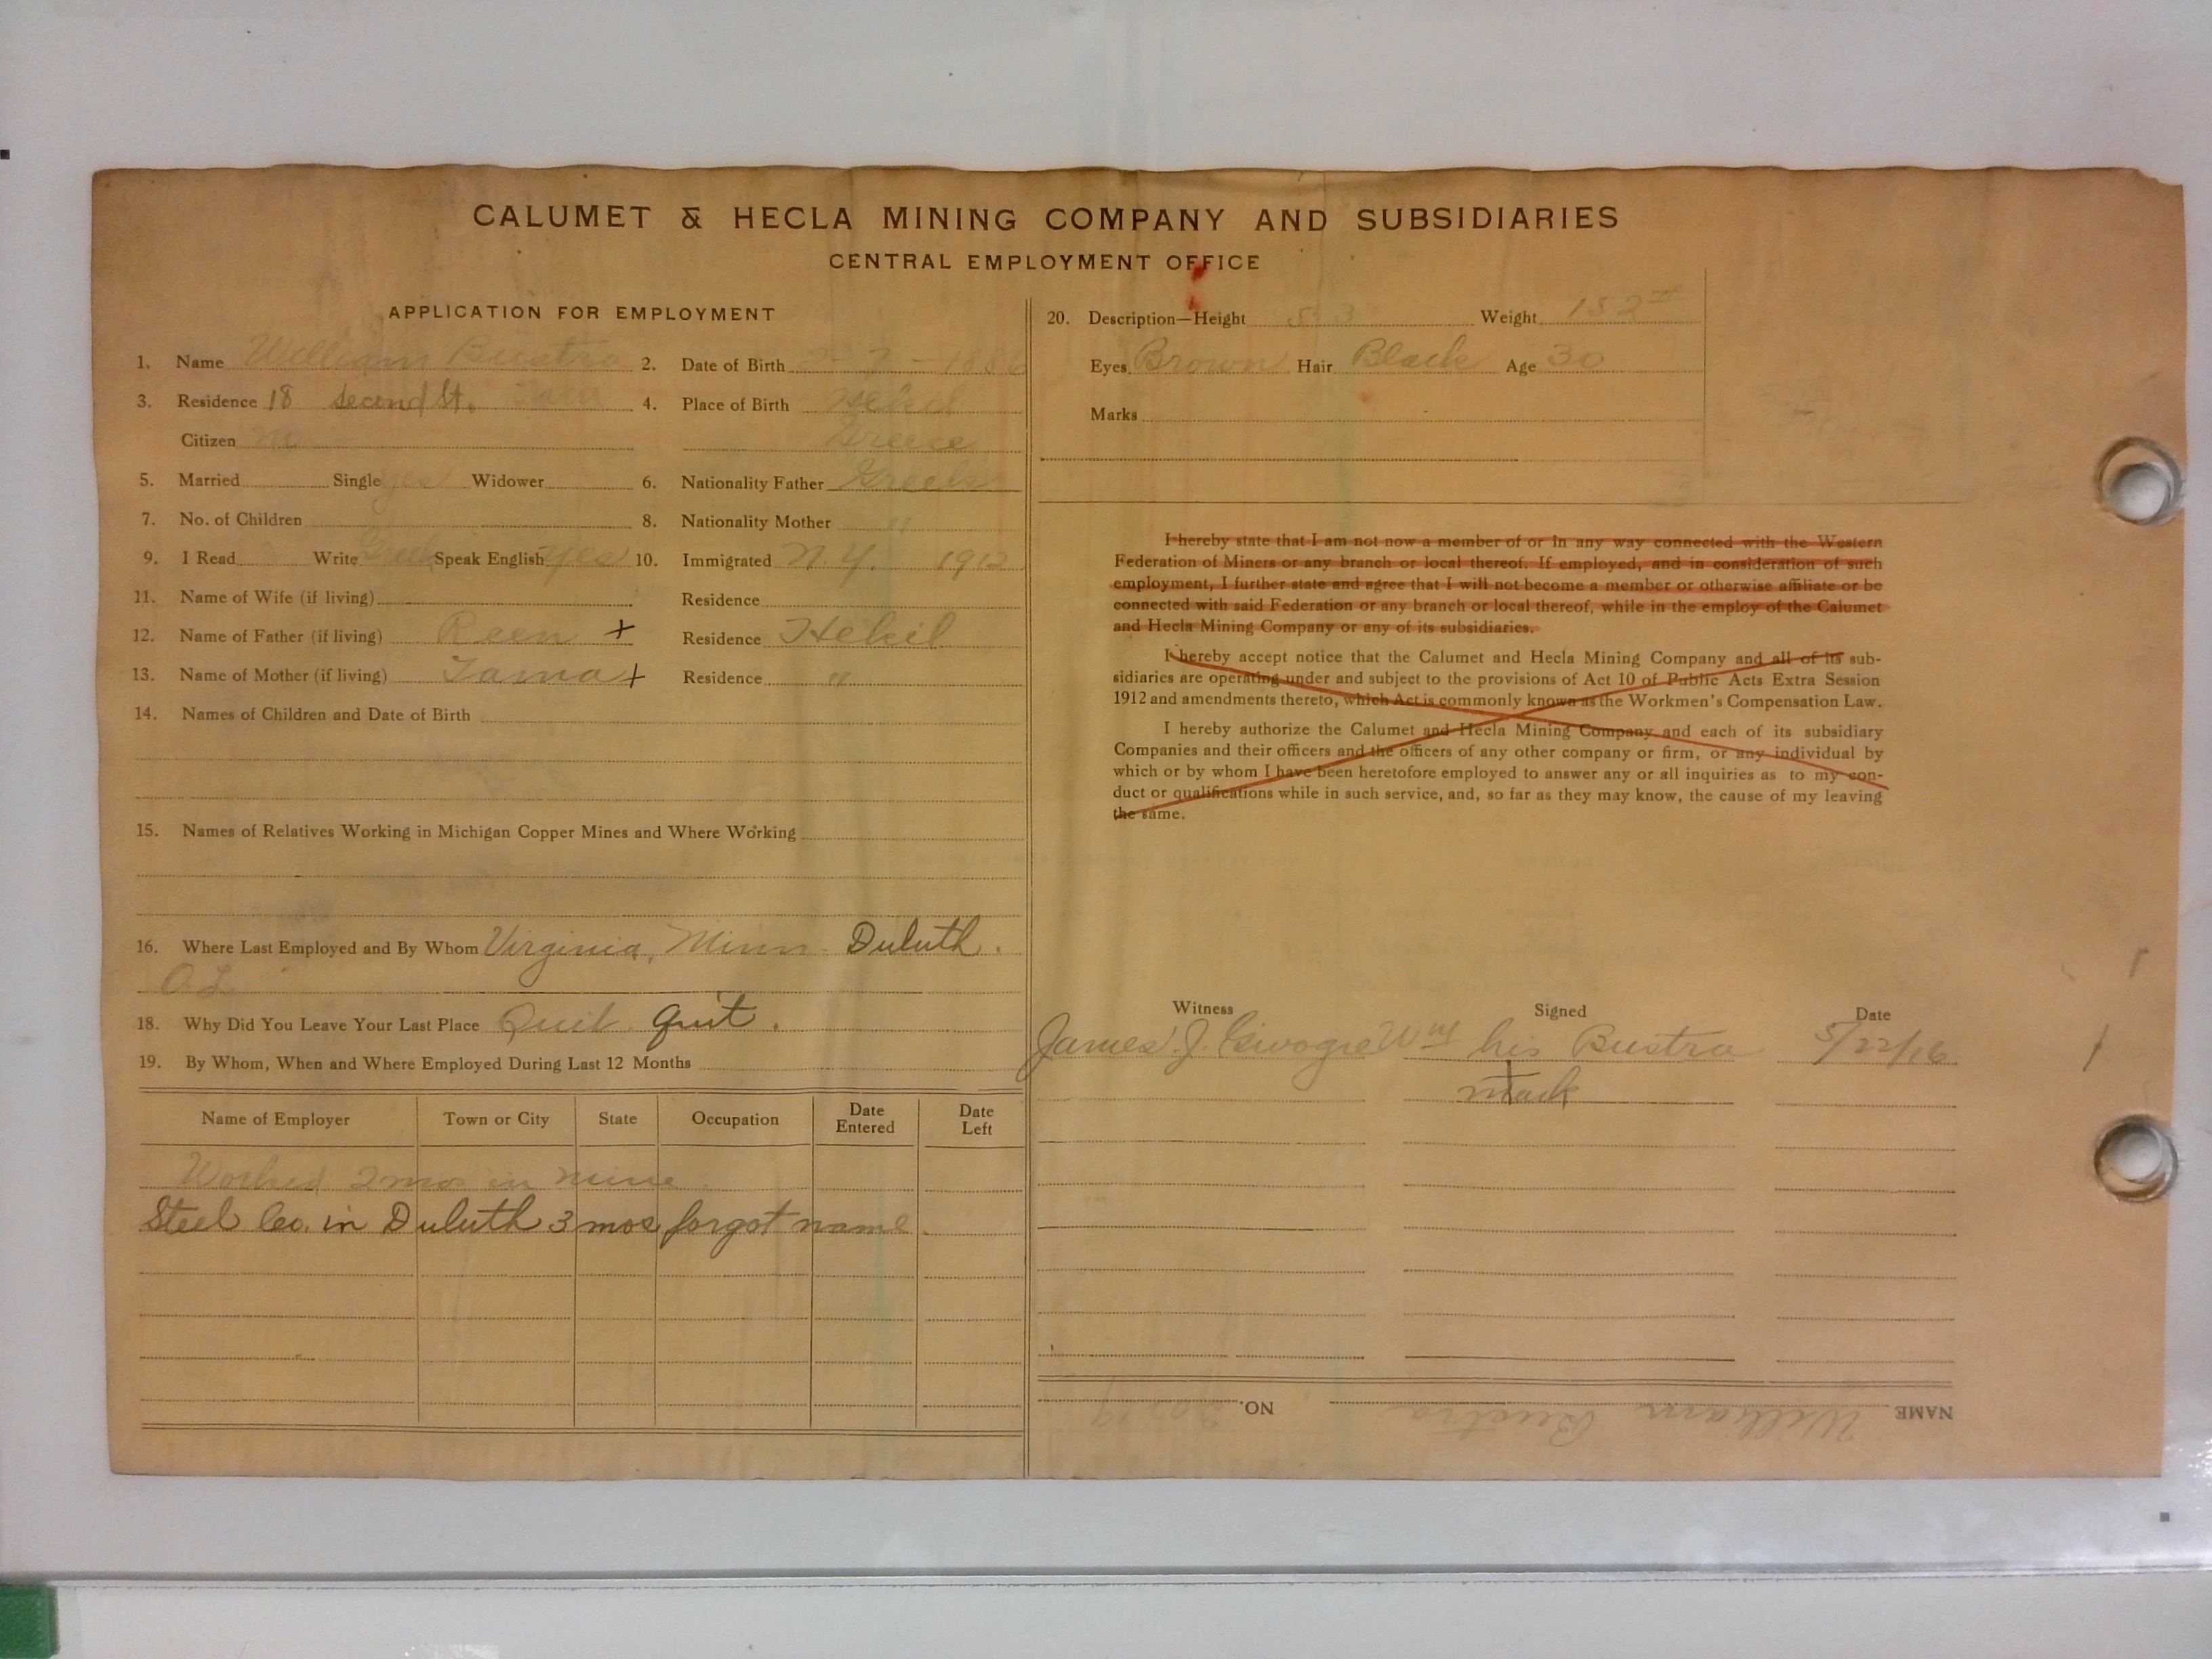 CALUMET & HECLA MINING COMPANY AND SUBSIDIARIES
CENTRAL EMPLOYMENT OFFICE
APPLICATION FOR EMPLOYMENT
1. Name William Bustra 2. Date of Birth 2-7-1886
3. Residence 18 Second St. 4. Place of Birth Hekil
Citizen no Greece
5. Married Single yes Widower 6. Nationality Father Greek
7. No. of Children 8. Nationality Mother "
9. I Read Write Greek Speak English yes 10. Immigrated N.Y. 1912
11. Name of Wife (if living) Residence
12. Name of Father (if living) Reen + Residence Hekil
13. Name of Mother (if living) Tama + Residence "
14. Names of Children and Date of Birth
15. Names of Relatives Working in Michigan Copper Mines and Where Working
16. Where Last Employed and By Whom Virginia, Minn. Duluth.
18. Why Did You Leave Your Last Place Quit quit.
19. By Whom, When and Where Employed During Last 12 Months
Name of Employer Town or City State Occupation Date Entered Date Left
Worked 2 mos in mine
Steel Co. in Duluth 3 mos forgot name.
20. Description—Height 5 3 Weight 152
Eyes Brown Hair Black Age 30
Marks
I hereby state that I am not now a member of or in any way connected with the Western
Federation of Miners or any branch or local thereof. If employed, and in consideration of such
employment, I further state and agree that I will not become a member or otherwise affiliate or be
connected with said Federation or any branch or local thereof, while in the employ of the Calumet
and Hecla Mining Company or any of its subsidiaries.
I hereby accept notice that the Calumet and Hecla Mining Company and all of its sub-
sidiaries are operating under and subject to the provisions of Act 10 of Public Acts Extra Session
1912 and amendments thereto, which Act is commonly known as the Workmen's Compensation Law.
I hereby authorize the Calumet and Hecla Mining Company and each of its subsidiary
Companies and their officers and the officers of any other company or firm, or any individual by
which or by whom I have been heretofore employed to answer any or all inquiries as to my con-
duct or qualifications while in such service, and, so far as they may know, the cause of my leaving
the same.
Witness Signed Date
James J. Wm his Bustra 5/22/16
mark
NAME William Bustra NO.